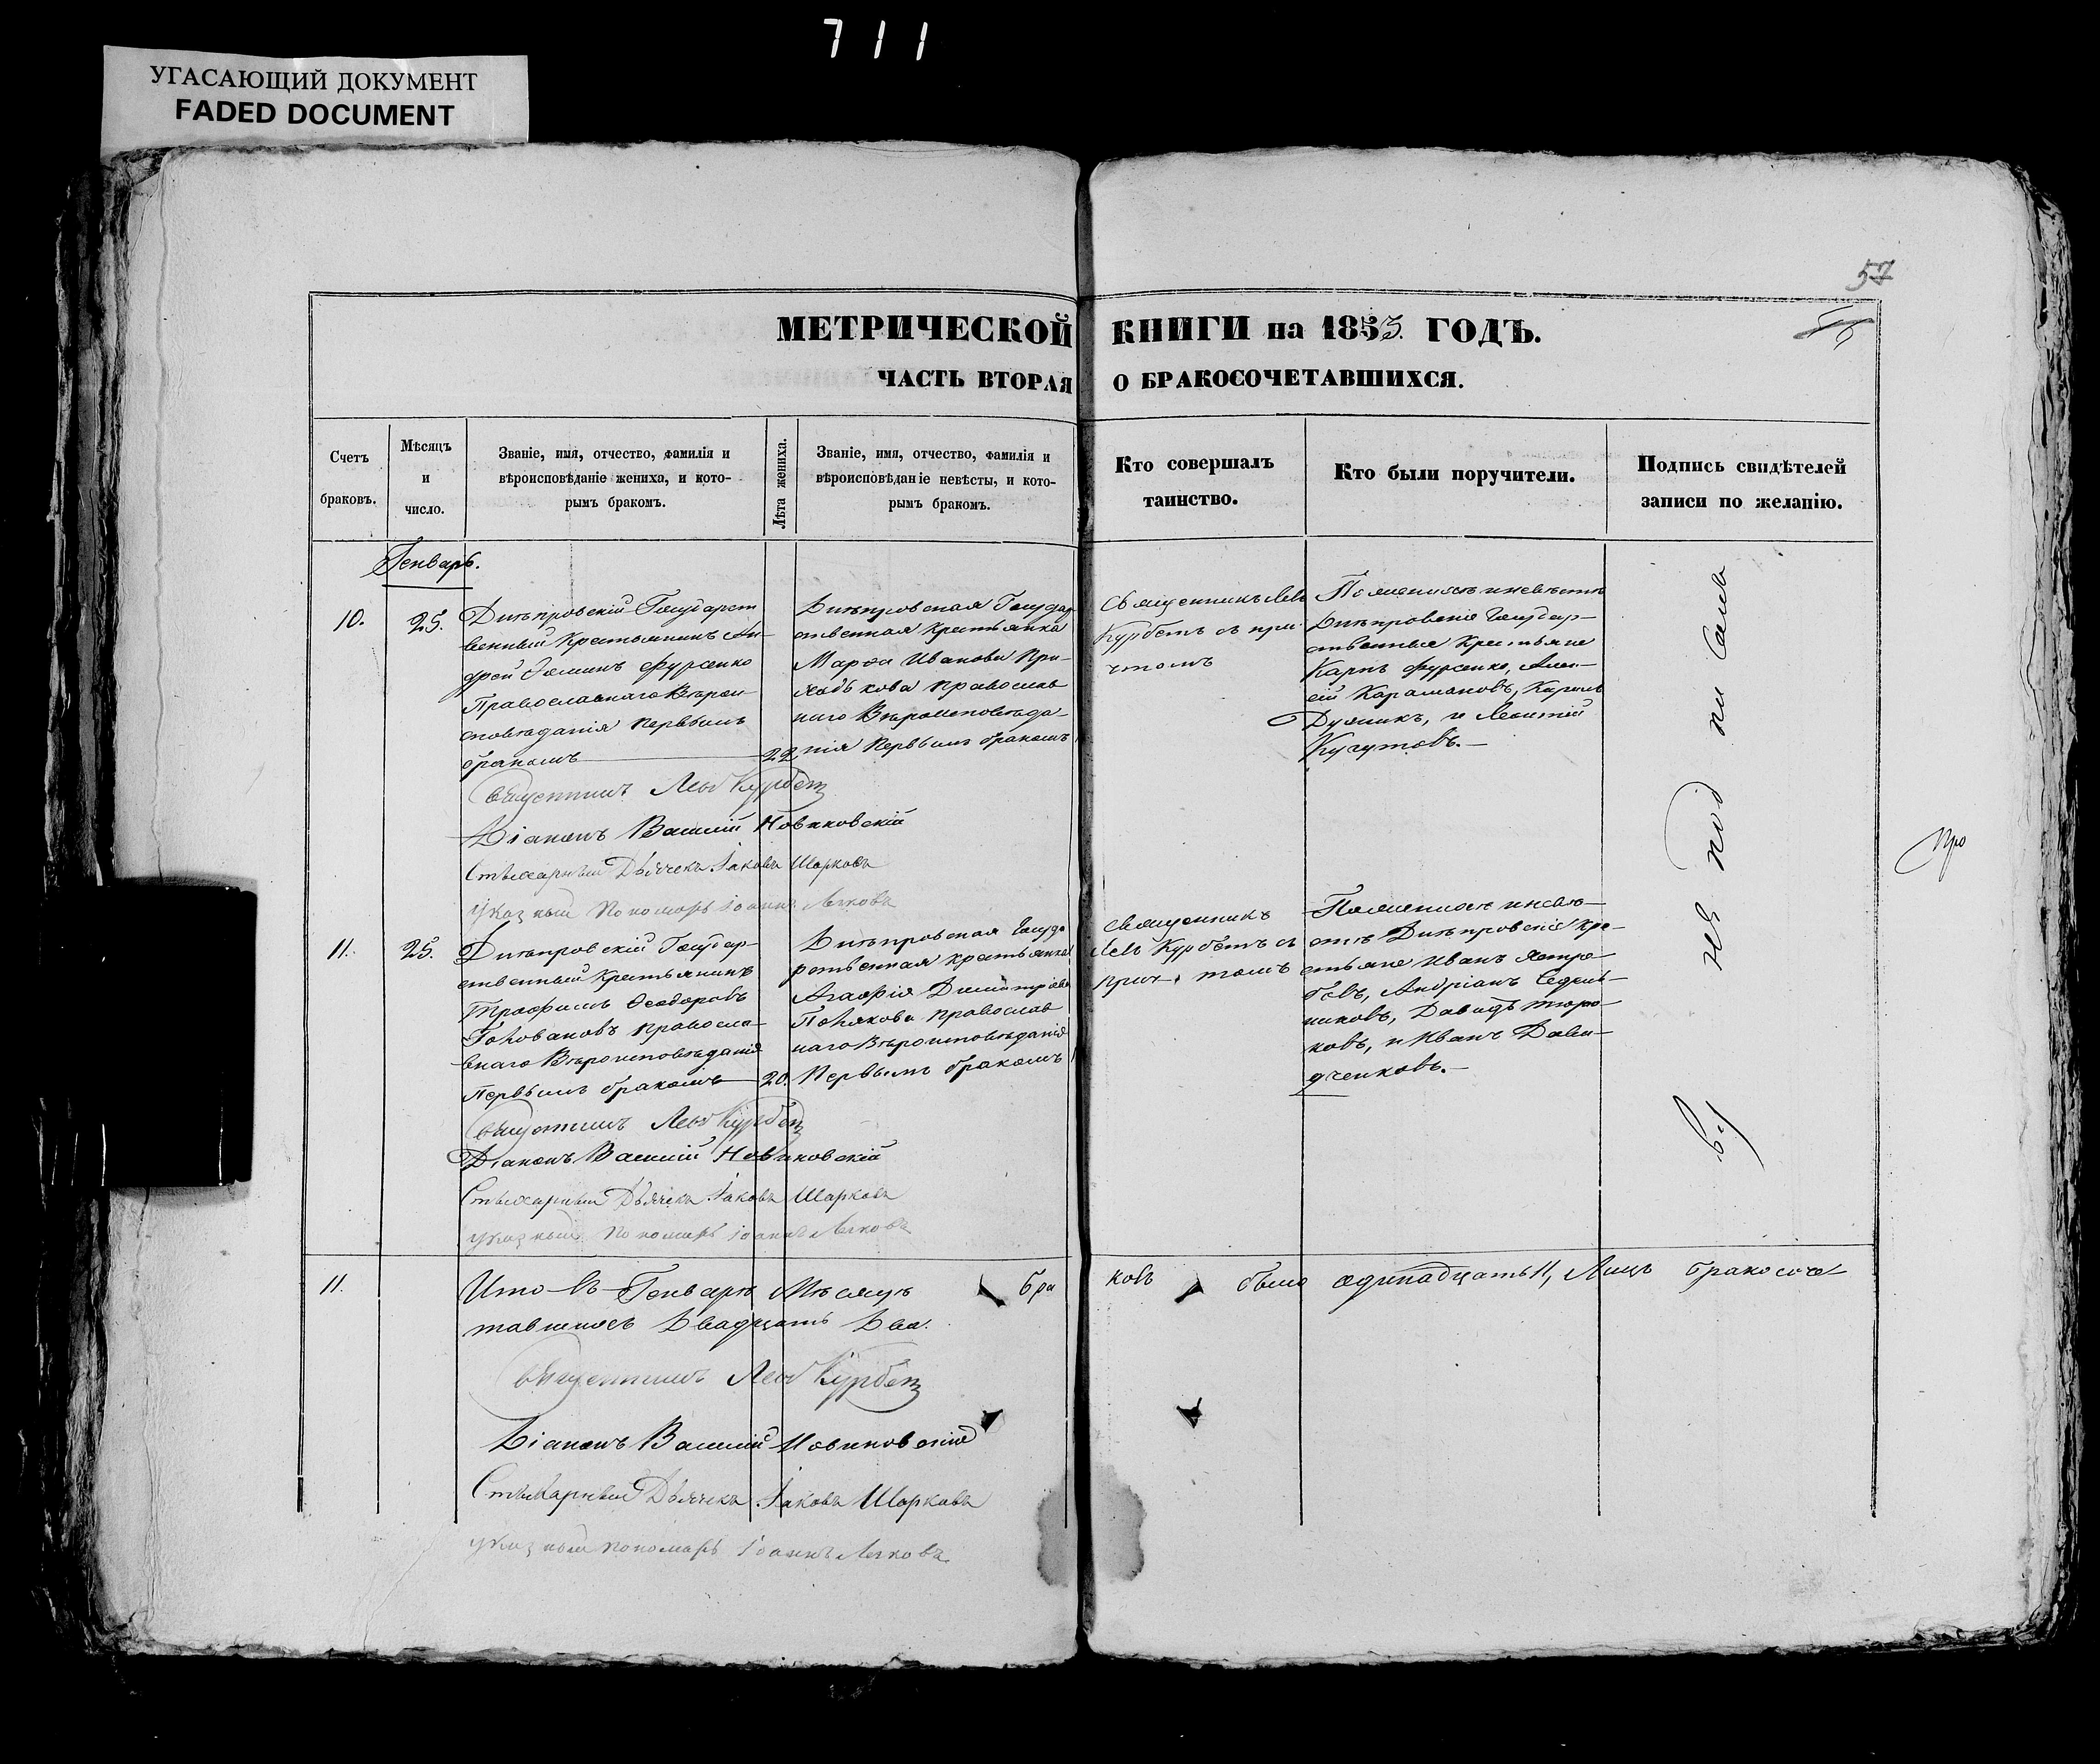 711
УГАСАЮЩИЙ ДОКУМЕНТ
FADED DOCUMENT
57
МЕТРИЧЕСКОЙ КНИГИ на 1853. ГОДЪ.
ЧАСТЬ ВТОРАЯ О БРАКОСОЧЕТАВШИХСЯ.
Счетъ
браковъ.
Мѣсяцъ
и
число.
Званіе, имя, отчество, фамилія и
вѣроисповѣданіе жениха, и кото-
рымъ бракомъ.
Лѣта жениха.
Званіе, имя, отчество, фамилія и
вѣроисповѣданіе невѣсты, и кото-
рымъ бракомъ.
Кто совершалъ
таинство.
Кто были поручители.
Подпись свидѣтелей
записи по желанію.
Генварь.
10.
25.
Днѣпровскій Государст
венный Крестьянинъ Ан-
дрей Ѳоминъ Фурсенко
Православнаго Вѣрои-
сповѣданія первымъ
бракомъ
22
Днѣпровская Государ
ственная Крестьянка
Марѳа Иванова При-
ходькова Православ
наго Вѣроисповѣда-
нія Первымъ бракомъ
Священникъ Левъ
Курбетъ съ при
чтомъ
По женихѣ и невѣстѣ
Днѣпровскіе Государ-
ственные Крестьяне
Карпъ Фурсенко, Алек-
сѣй Карамановъ, Кирилъ
и Леонтій
Кугутовъ.—
Священникъ Левъ Курбетъ
Діаконъ Василій Новиковскій
Стихарный Дьячекъ Іаковъ Шарковъ
Указный Пономарь Іоаннъ Лячковъ
11.
25.
Днѣпровскій Государ-
ственный Крестьянинъ
Трофимъ Ѳеодоровъ
Головановъ Правосла-
внаго Вѣроисповѣданія
Первымъ бракомъ
20.
Днѣпровская Госуда
рственная Крестьянка
Агафія Димитріева
Полякова Православ
наго Вѣроисповѣданія
Первымъ бракомъ
Священникъ
Левъ Курбетъ съ
причтомъ
По женихѣ и невѣ-
стѣ Днѣпровскіе Кре-
стьяне Иванъ Ястре
бовъ, Андріанъ Седель-
никовъ, Давидъ
ковъ, и Иванъ Дави-
дченковъ.—
Священникъ Левъ Курбетъ
Діаконъ Василій Новиковскій
Стихарный Дьячекъ Іаковъ Шарковъ
Указный Пономарь Іоаннъ Лячковъ
11.
Итого въ Генварѣ Мѣсяцѣ бра ковъ было одинадцать 11, Лицъ бракосоче
тавшихся Двадцать Два.
Священникъ Левъ Курбетъ
Діаконъ Василій Новиковскій
Стихарный Дьячекъ Іаковъ Шарковъ
Указный Пономарь Іоаннъ Лячковъ
не под пи сались
Про